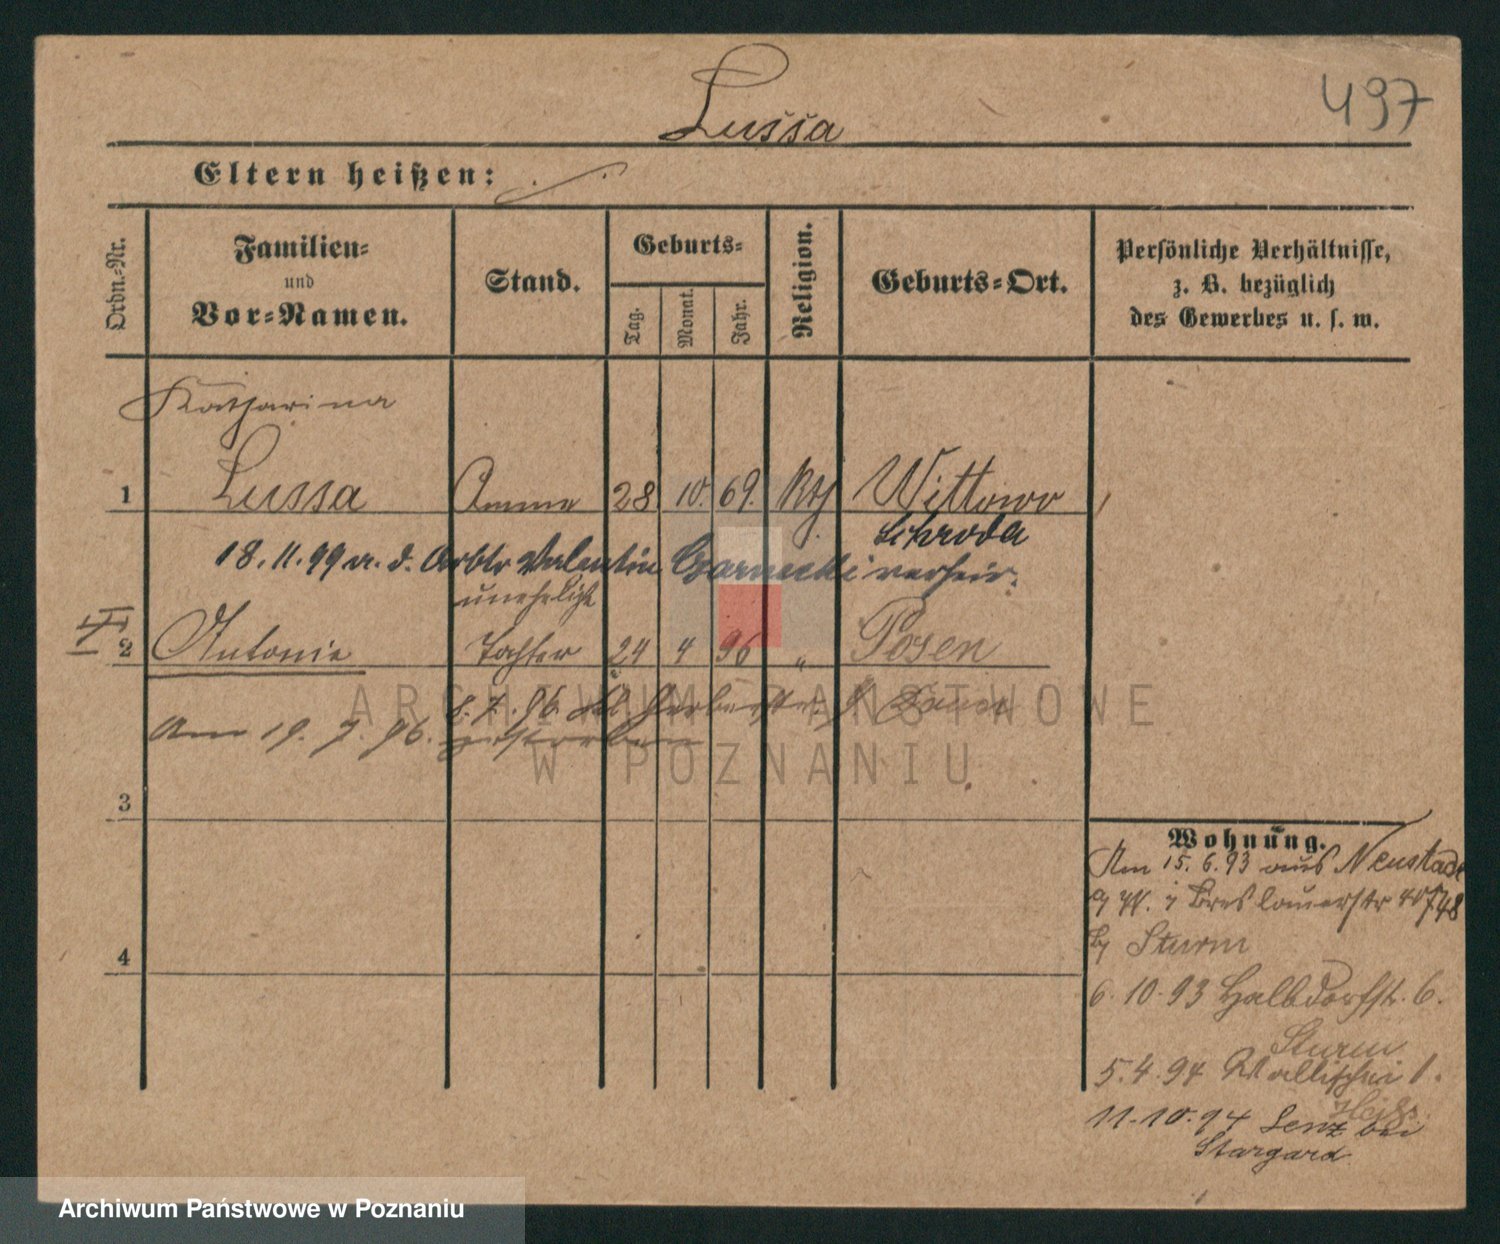 Lussa
497
Eltern heißen:
Ordn.-Nr.
Familien-
und
Vor-Namen.
Stand.
Geburts-
Tag.
Monat.
Jahr.
Religion.
Geburts-Ort.
Persönliche Verhältnisse,
z. B. bezüglich
des Gewerbes u. s. w.
Katharina
1 Lussa Amme 28. 10. 69. Kth Wittowo
Schroda
18.11.99 a. d. Arbtr Valentin verheir.
unehelich
II
2 Antonie Tochter 24 4 96 " Posen
8. 7. 96.
Am 19. 7. 96. gestorben
3
4
Wohnung.
Am 15. 6. 93 aus Neustadt
a/W. Breslauerstr
bei Sturm
6. 10. 93 Halbdorfstr. 6.
Sturm
5. 4. 94 Wallischei 1.
11. 10. 94 Lenz bei
Stargard
ARCHIWUM PAŃSTWOWE
W POZNANIU
Archiwum Państwowe w Poznaniu